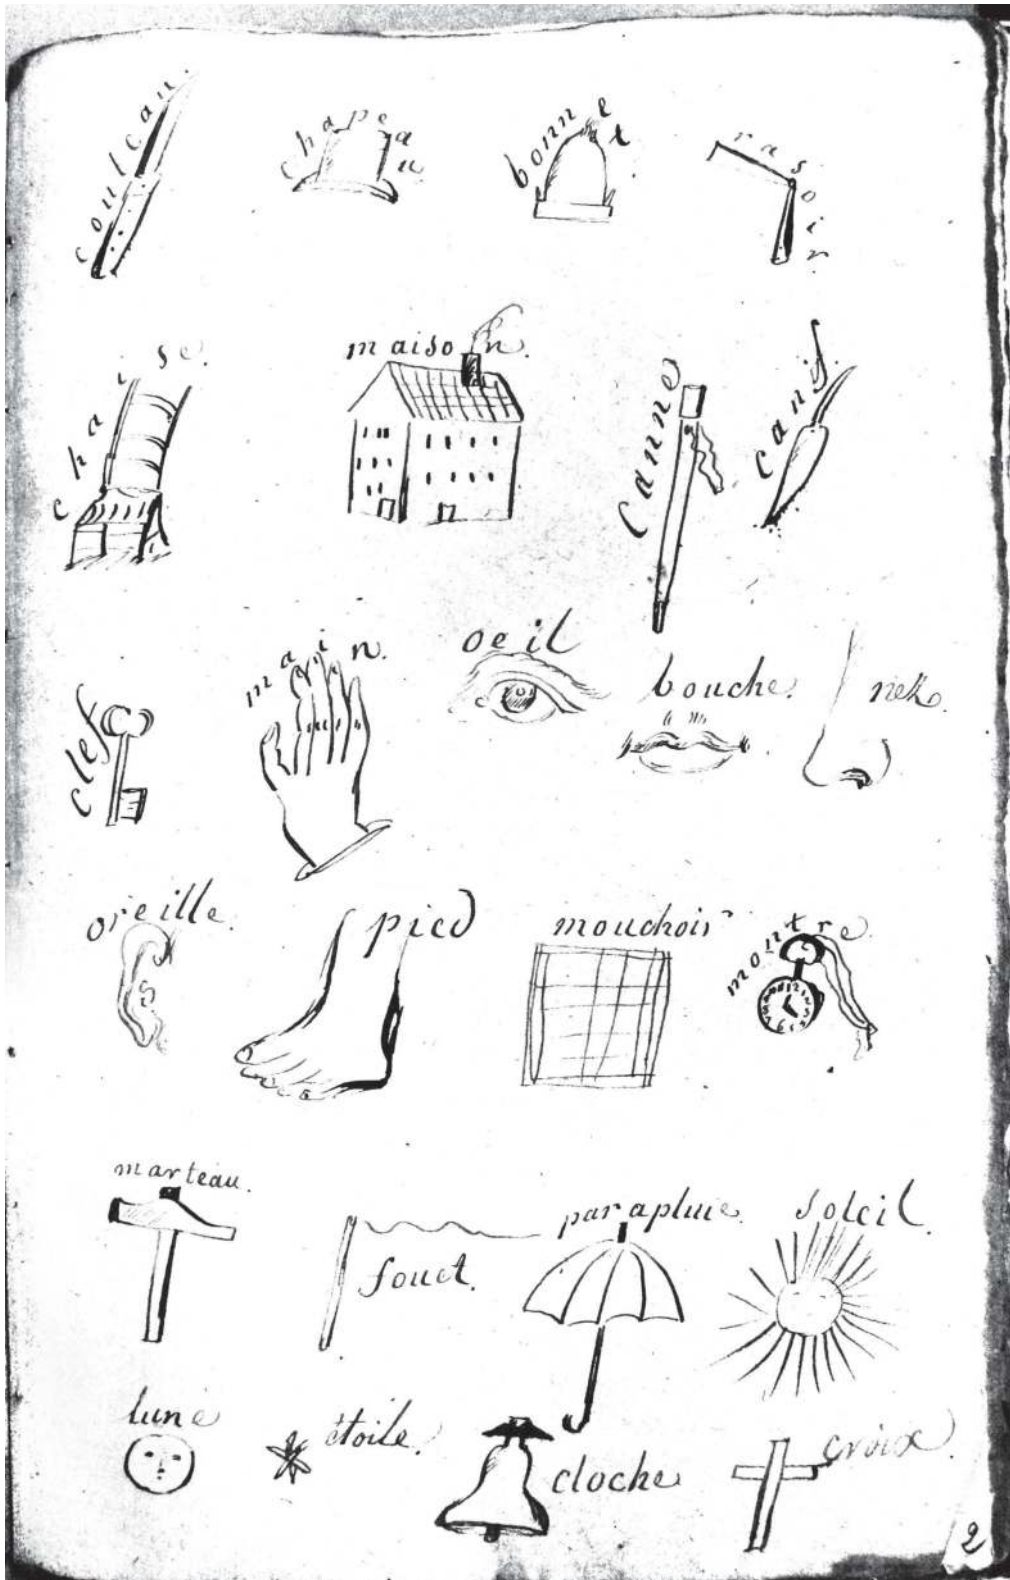 coulcau.
chapeau
bonnet
rasoir
chaise.
maison.
canne
canif
clef
main.
oeil
bouche.
nez.
oreille.
pied
mouchoir
montre.
marteau.
fouet.
parapluie.
soleil.
lune
étoile.
cloche
croix.
2